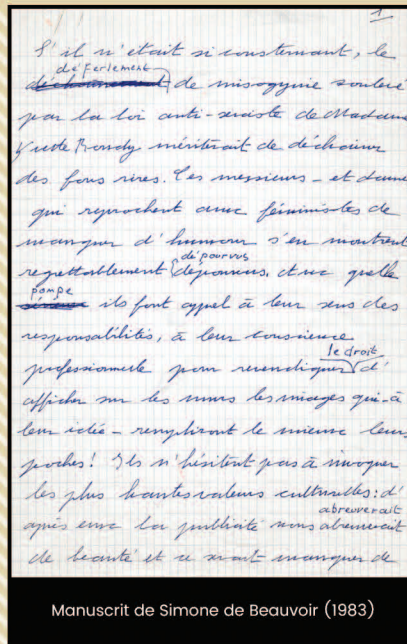 1
S'il n'était si consternant, le
déferlement
déchaînement de misogynie soulevé
par la loi anti-sexiste de Madame
Yvette Roudy mériterait de déchaîner
des fous rires. Ces messieurs - et dames
qui reprochent aux féministes de
manquer d'humour s'en montrent
dépourvus
regrettablement dépourvus. Avec quelle
pompe
ils font appel à leur sens des
responsabilités, à leur conscience
le droit
professionnelle pour revendiquer d'
afficher sur les murs les images qui - à
leur idée - rempliront le mieux leurs
poches! Ils n'hésitent pas à invoquer
les plus hautes valeurs culturelles: d'
abreuverait
après eux la publicité nous abreuverait
de beauté et ce serait manquer de
Manuscrit de Simone de Beauvoir (1983)